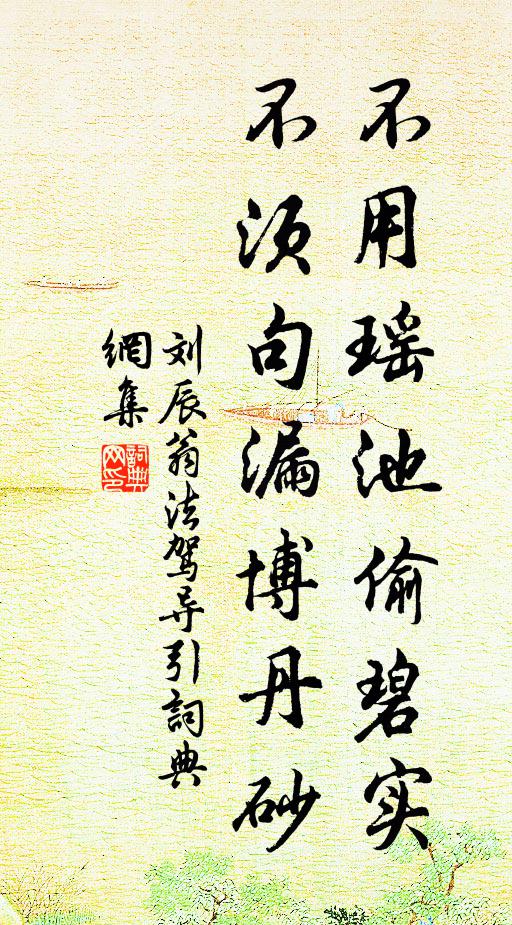 不用瑶池偷碧实
不须句漏博丹砂
刘辰翁法驾导引詞典
網集
詞典网印